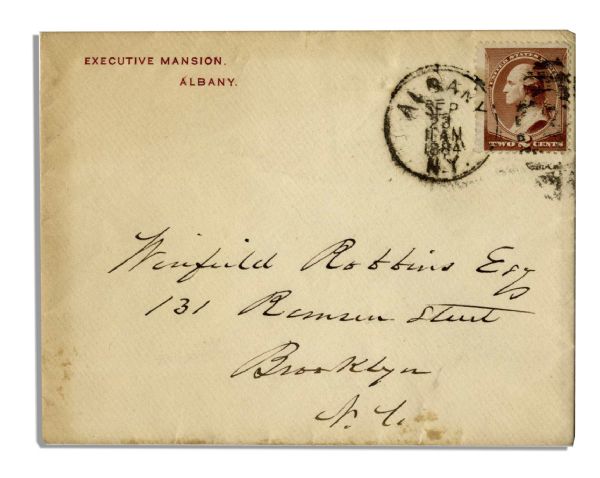 EXECUTIVE MANSION.
ALBANY.
ALBANY
SEP
23
11 AM
1884
N.Y.
UNITED STATES
TWO 2 CENTS
Winfield Robbins Esq
131 Remsen Street
Brooklyn
N.Y.